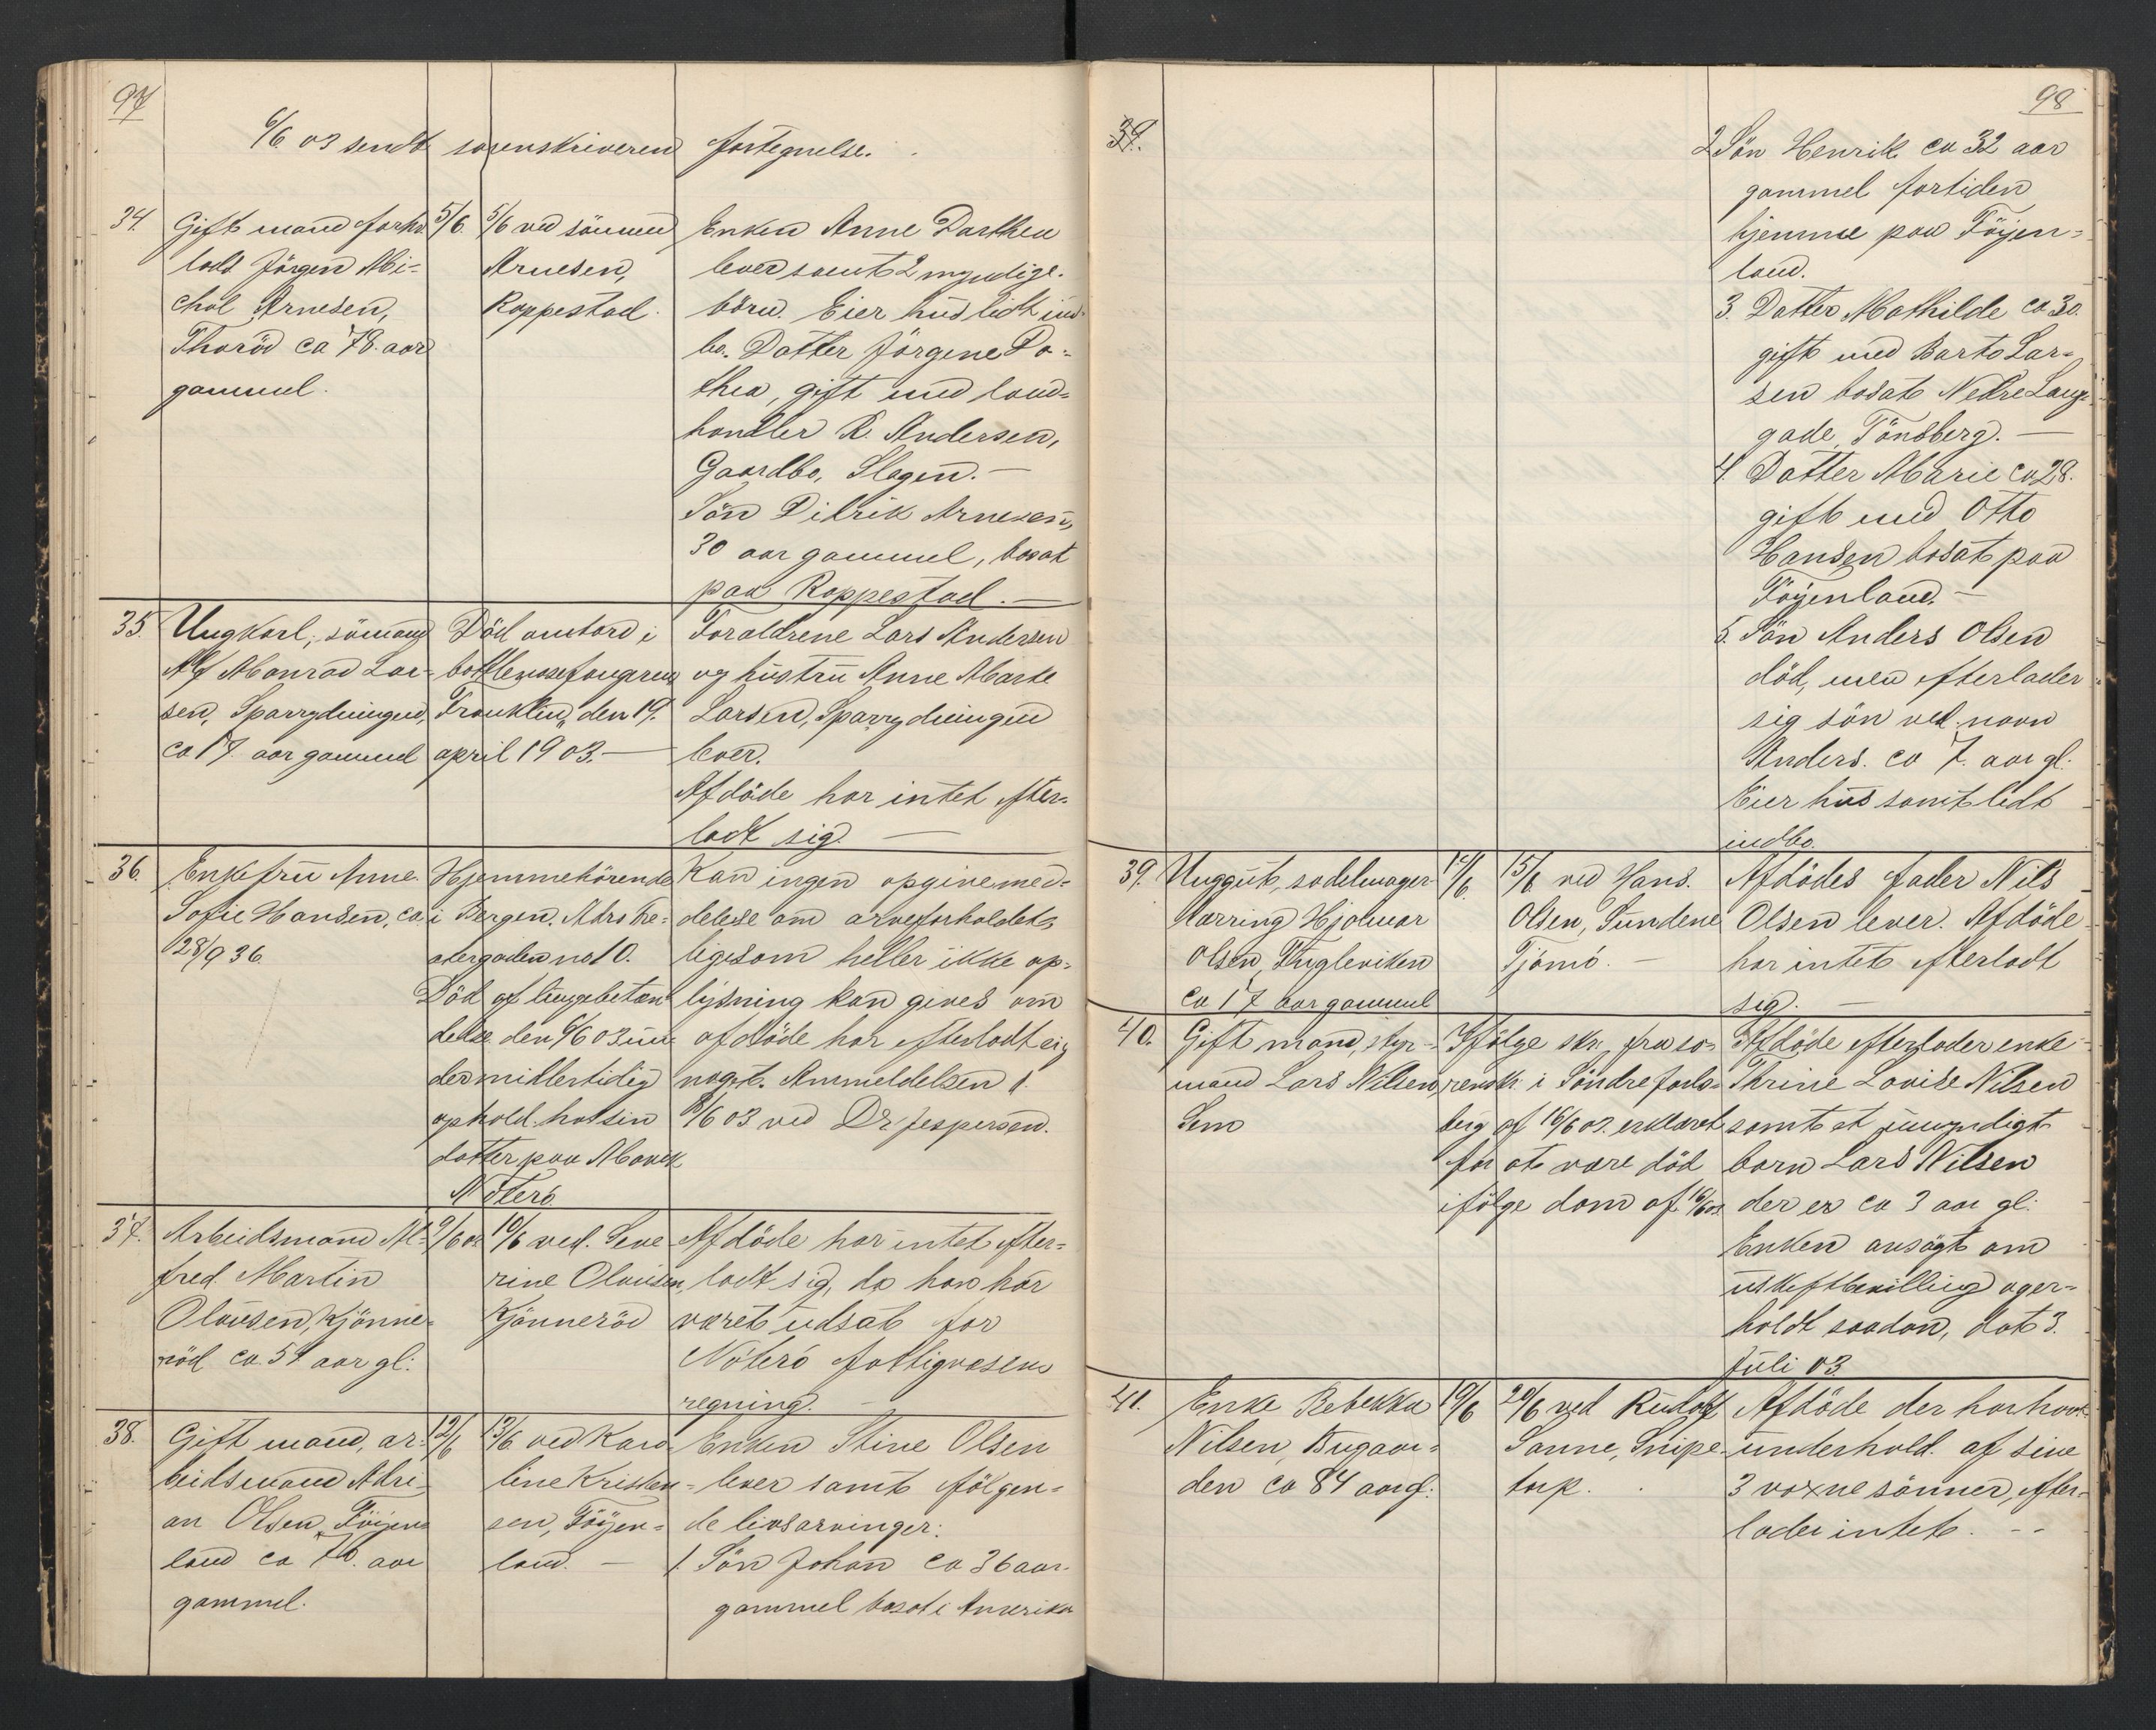 97
6/6 03 sendt sorenskriveren fortegnelse.
34.
Gift mand forhv.
lods Jörgen Mi-
chal Arnesen,
Thoröd ca 78. aar
gammel.
5/6.
5/6 ved sönnen
Arnesen,
Roppestad.
Enken Anne Dorthea
lever samt 2 myndige.
börn. Eier hus lidt ind-
bo. Datter Jörgine Do-
thea, gift med land-
handler R. Andersen,
Gaardbo, Slagen. —
Sön Didrik Arnesen,
30 aar gammel, bosat
paa Roppestad. —
35.
Ungkarl, sömand
Alf Manrad Lar-
sen, Sparrydningen,
ca 17 aar gammel
Död ombord i
bottlenosefangeren
Franklin, den 19.
april 1903. —
Foraldrene Lars Andersen
og hustru Anne Marte
Larsen, Sparrydningen
lever.
Afdöde har intet efter-
ladt sig. —
36.
Enkefru Anne
Sofie Hansen, ca
28/9 36.
Hjemmehörende
i Bergen. Adrs Te-
atergaden no 10.
Död af lungebetæn-
delse den 6/6 03 un-
der midlertidig
ophold hos sin
datter paa
Nöterö.
Kan ingen opgive med-
delelse om arveforholdet,
ligesom heller ikke op-
lysning kan gives om
afdöde har efterladt sig
noget. Anmeldelsen
8/6 03 ved Dr Jespersen.
37.
Arbeidsmand Al-
fred Martin
Olausen, Kjönne-
röd ca. 51 aar gl:
9/6 03
10/6 ved. Seve
rine Olausen,
Kjönneröd
Afdöde har intet efter-
ladt sig, da han har
været udsat for
Nöterö fattigvæsens
regning. —
38.
Gift mand, ar-
beidsmand Adri-
an Olsen, Föyen-
land ca 70. aar
gammel.
12/6
13/6 ved Karo-
line Kristen-
sen, Föyen-
land. —
Enken Stine Olsen
lever samt fölgen-
de livsarvinger:
1. Sön Johan ca 36 aar.
gammel bosat i Amerika
98
39.
2 Sön Henrik ca 32 aar
gammel fortiden
hjemme paa Föyen-
land.
3. Datter Mathilde ca 30.
gift med Barto Lar-
sen bosat Nedre Lang-
gade, Tönsberg. —
4. Datter Marie ca 28.
gift med Otto
Hansen bosat paa
Föyenland. —
5. Sön Anders Olsen
död, men efterlader
sig sön ved navn
Anders. ca 7. aar gl.
Eier hus samt lidt
indbo.
39.
Unggut, sadelmager-
lærring Hjalmar
Olsen, Fugleviken
ca 17 aar gammel
14/6.
15/6 ved Hans.
Olsen, Sundene
Tjömö. —
Afdödes fader Nils
Olsen lever. Afdöde
har intet efterladt
sig. —
40.
Gift mand, styr-
mand Lars Nilsen
Sem
Ifölge skr. fra so-
rensk. i Söndre Jarls-
berg af 16/6 03. erklæret
for at være död
ifölge dom af 16/6 03.
Afdöde efterlader enke
Thrine Lovise Nilsen
samt et umyndigt
barn Lars Nilsen
der er ca 3 aar gl:
Enken ansögt om
uskiftbevilling og er-
holdt saadan, dat 3.
Juli 03
41.
Enke Rebekka
Nilsen, Bugaar-
den ca 84 aar gl:
19/6
20/6 ved Rudolf
Sanne, Snipe-
trip.
Afdöde der har havt
underhold. af sine
3 voxne sönner, efter-
lader intet. --